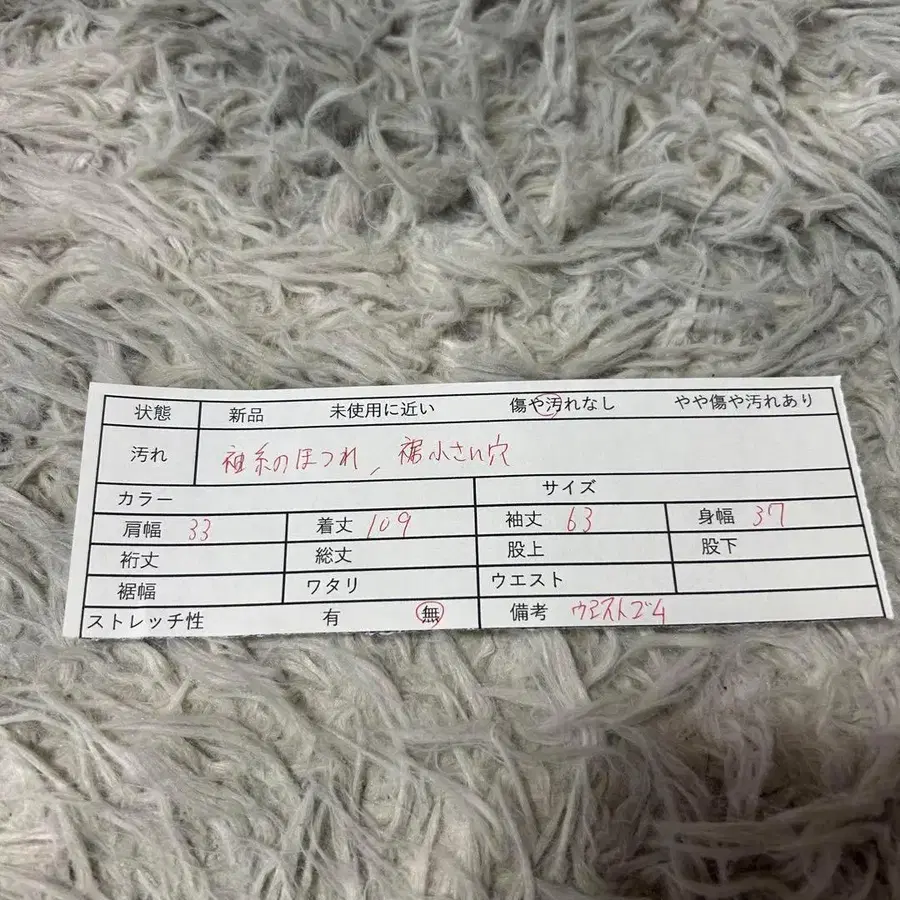 状態 新品 未使用に近い 傷や汚れなし やや傷や汚れあり
汚れ 袖糸のほつれ、裾小さい穴
カラー サイズ
肩幅 33 着丈 109 袖丈 63 身幅 37
裄丈 総丈 股上 股下
裾幅 ワタリ ウエスト
ストレッチ性 有 無 備考 ウエストゴム